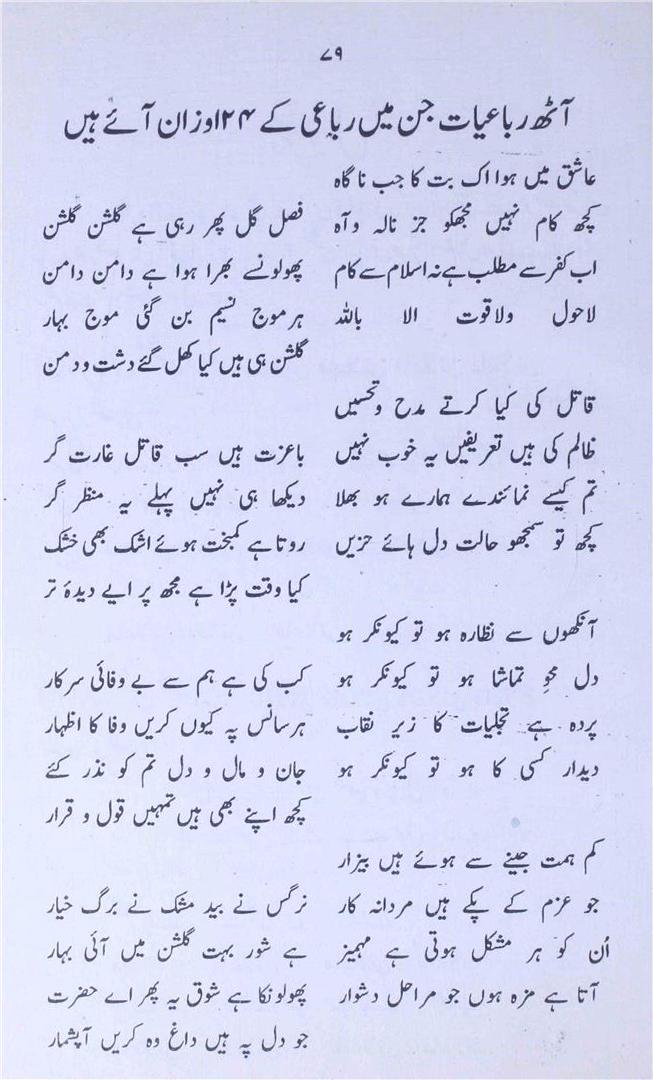 ۷۹
آٹھ رباعیات جن میں رباعی کے ۲۴ اوزان آئے ہیں
عاشق میں ہوا اک بت کا جب ناگاہ
کچھ کام نہیں مجھکو جز نالہ و آہ
اب کفر سے مطلب ہے نہ اسلام سے کام
لاحول ولاقوت الا باللہ
فصل گل پھر رہی ہے گلشن گلشن
پھولونسے بھرا ہوا ہے دامن دامن
ہر موج نسیم بن گئی موج بہار
گلشن ہی ہیں کیا کھل گئے دشت و دمن
قاتل کی کیا کرتے مدح و تحسیں
ظالم کی ہیں تعریفیں یہ خوب نہیں
تم کیسے نمائندے ہمارے ہو بھلا
کچھ تو سمجھو حالت دل ہائے حزیں
باعزت ہیں سب قاتل غارت گر
دیکھا ہی نہیں پہلے یہ منظر گر
روتا ہے کمبخت ہوئے اشک بھی خشک
کیا وقت پڑا ہے مجھ پر اے دیدۂ تر
آنکھوں سے نظارہ ہو تو کیونکر ہو
دل محوِ تماشا ہو تو کیونکر ہو
پردہ ہے تجلیات کا زیر نقاب
دیدار کسی کا ہو تو کیونکر ہو
کب کی ہے ہم سے بے وفائی سرکار
ہر سانس پہ کیوں کریں وفا کا اظہار
جان و مال و دل تم کو نذر کئے
کچھ اپنے بھی ہیں تمہیں قول و قرار
کم ہمت جینے سے ہوئے ہیں بیزار
جو عزم کے پکے ہیں مردانہ کار
اُن کو ہر مشکل ہوتی ہے مہمیز
آتا ہے مزہ ہوں جو مراحل دشوار
نرگس نے بید مشک نے برگ خیار
ہے شور بہت گلشن میں آئی بہار
پھولونکا ہے شوق یہ پھر اے حضرت
جو دل پہ ہیں داغ وہ کریں آپشمار